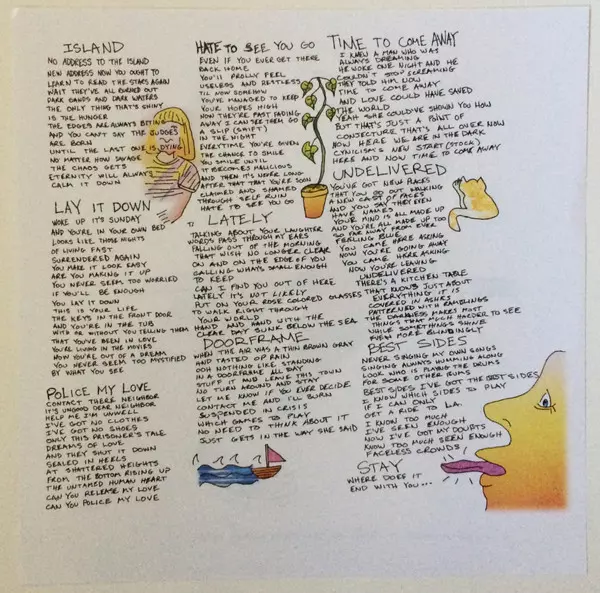 ISLAND
NO ADDRESS TO THE ISLAND
NEW ADDRESS NOW YOU OUGHT TO
LEARN TO READ THE STARS AGAIN
WAIT THEY'VE ALL BURNED OUT
DARK SANDS AND DARK WATERS
THE ONLY THING THAT'S SHINY
IS THE HUNGER
THE EDGES ARE ALWAYS BITING
AND YOU CAN'T SAY THE JUDGES
ARE BORN
UNTIL THE LAST ONE IS DYING
NO MATTER HOW SAVAGE
THE CHAOS GETS
ETERNITY WILL ALWAYS
CALM IT DOWN
LAY IT DOWN
WOKE UP IT'S SUNDAY
AND YOU'RE IN YOUR OWN BED
LOOKS LIKE THOSE NIGHTS
OF LIVING FAST
SURRENDERED AGAIN
YOU MAKE IT LOOK EASY
ARE YOU MAKING IT UP
YOU NEVER SEEM TOO WORRIED
IF YOU'LL BE ENOUGH
YOU LAY IT DOWN
THIS IS YOUR LIFE
THE KEYS IN THE FRONT DOOR
AND YOU'RE IN THE TUB
WITH OR WITHOUT YOU TELLING THEM
THAT YOU'VE BEEN IN LOVE
YOU'RE LIVING IN THE MOVIES
HOW YOU'RE OUT OF A DREAM
YOU NEVER SEEM TOO MYSTIFIED
BY WHAT YOU SEE
POLICE MY LOVE
CONTACT THERE NEIGHBOR
IT'S UNGOOD DEAR NEIGHBOR
HELP ME I'M UNWELL
I'VE GOT NO CLOTHES
I'VE GOT NO SHOES
ONLY THIS PRISONER'S TALE
DREAMS OF LOVE
AND THEY SHUT IT DOWN
SEALED IN HEELS
AT SHATTERED HEIGHTS
FROM THE BOTTOM RISING UP
THE UNTAMED HUMAN HEART
CAN YOU RELEASE MY LOVE
CAN YOU POLICE MY LOVE
HATE TO SEE YOU GO
EVEN IF YOU EVER GET THERE
BACK HOME
YOU'LL PROLLY FEEL
USELESS AND RESTLESS
TIL NOW SOMEHOW
YOU'VE MANAGED TO KEEP
YOUR HOPES HIGH
NOW THEY'RE FAST FADING
AWAY I CAN SEE THEM GO
A SLIP (SHIFT)
IN THE NIGHT
EVERYTIME YOU'RE GIVEN
THE CHANCE TO SMILE
YOU SMILE UNTIL
IT BECOMES MALICIOUS
AND THEN IT'S NEVER LONG
AFTER THAT THAT YOU'RE SOON
CLAIMED AND SHAMED
THROUGH SELF RUIN
HATE TO SEE YOU GO
LATELY
TALKING ABOUT YOUR LAUGHTER
WORDS PASS THROUGH MY EARS
FALLING OUT OF THE MORNING
THAT WISH NO LONGER CLEAR
ON TO AND ON THE EDGE OF YOU
CALLING WHAT'S SMALL ENOUGH
TO KEEP
CAN I FIND YOU OUT OF HERE
LATELY IT'S NOT LIKELY
PUT ON YOUR ROSE COLORED GLASSES
TO WALK RIGHT THROUGH
YOUR WORLD
HAND AND HAND WITH THE
CLEAR DAY SUNK BELOW THE SEA
DOORFRAME
WHEN THE AIR WAS A THIN BROWN GRAY
AND TASTED OF RAIN
OOH NOTHING LIKE STANDING
IN A DOORFRAME ALL DAY
STUFF IT AND LEAVE THIS TOWN
NO TURN AROUND AND STAY
LET ME KNOW IF YOU EVER DECIDE
CONTACT ME AND I'LL BURN
SUSPENDED IN CRISIS
WHICH GAMES TO PLAY
NO NEED TO THINK ABOUT IT
JUST GETS IN THE WAY SHE SAID
TIME TO COME AWAY
I KNEW A MAN WHO WAS
ALWAYS DREAMING
HE WOKE ONE NIGHT AND HE
COULDN'T STOP SCREAMING
THEY TOLD HIM NOW
TIME TO COME AWAY
AND LOVE COULD HAVE SAVED
THE WORLD
YEAH SHE COULD'VE SHOWN YOU HOW
BUT THAT'S JUST A POINT OF
CONJECTURE, THAT'S ALL OVER NOW
NOW HERE WE ARE IN THE DARK
CYNICISM'S NEW START (STOCK)
HERE AND NOW TIME TO COME AWAY
UNDELIVERED
YOU'VE GOT NEW PLACES
THAT YOU GO OUT WALKING
A NEW CAST OF FACES
AND YOU SAY THEY EVEN
HAVE NAMES
YOUR MIND IS ALL MADE UP
AND YOU'RE ALL MADE UP TOO
SO FAR AWAY FROM EVER
FEELING BLUE
YOU CAME HERE ASKING
NOW YOU'RE GOING AWAY
YOU CAME HERE ASKING
NOW YOU'RE LEAVING
UNDELIVERED
THERE'S A KITCHEN TABLE
THAT KNOWS JUST ABOUT
EVERYTHING IT IS
COVERED IN ASHES
PATTERNED WITH RAMBLINGS
THE DARKNESS MAKES MOST
THINGS THAT MUCH HARDER TO SEE
WHILE SOMETHINGS SHINE
EVEN MORE BLINDINGLY
BEST SIDES
NEVER SINGING MY OWN SONGS
SINGING ALWAYS HUMMING ALONG
LOOK WHO IS PLAYING THE DRUMS
FOR SOME OTHER BUMS
BEST SIDES I'VE GOT THE BEST SIDES
I KNOW WHICH SIDES TO PLAY
IF I CAN ONLY
GET A RIDE TO L.A.
I KNOW TOO MUCH
I'VE SEEN ENOUGH
NOW I'VE GOT MY DOUBTS
KNOW TOO MUCH SEEN ENOUGH
FACELESS CROWDS
STAY
WHERE DOES IT
END WITH YOU...